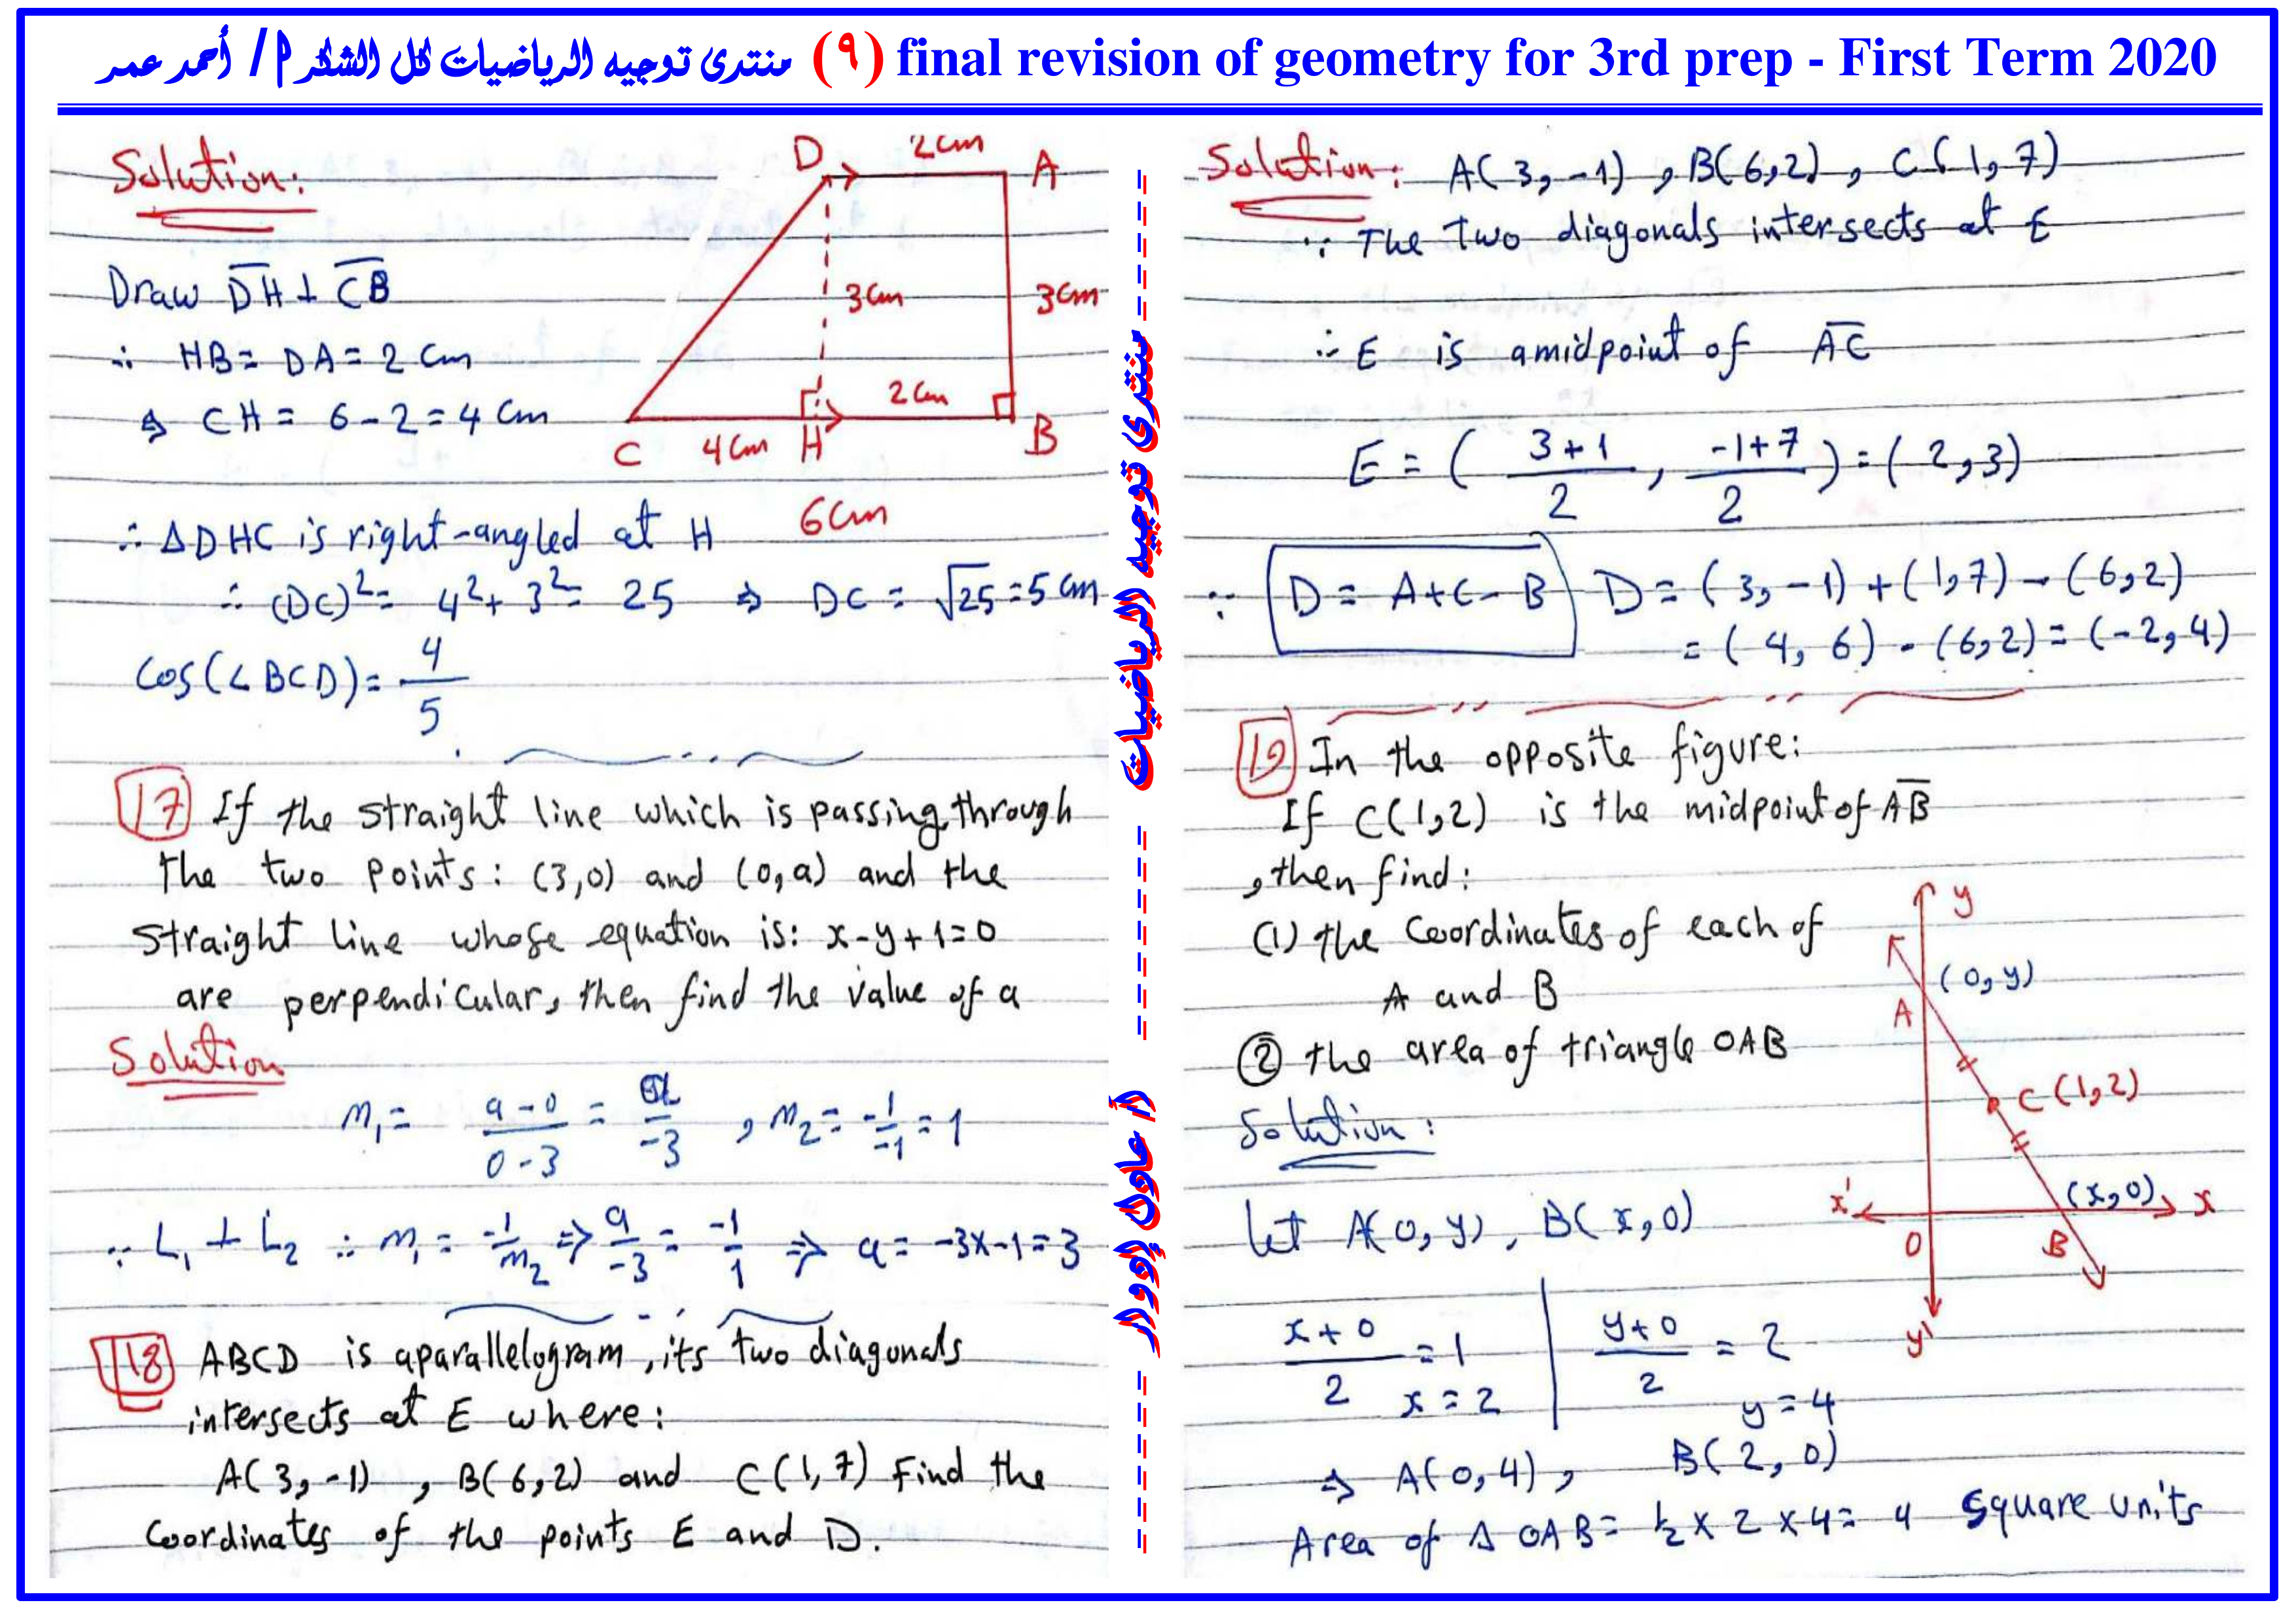 منتدى توجيه الرياضيات لكل الشكر م/ أحمد عمر (٩) final revision of geometry for 3rd prep - First Term 2020
Solution:
D 2cm A
3cm 3cm
2cm
C 4cm H B
6cm
Draw D̅H̅ ⊥ C̅B̅
∴ HB = DA = 2 cm
⇒ CH = 6 - 2 = 4 cm
∴ ΔDHC is right-angled at H
∴ (DC)² = 4² + 3² = 25 ⇒ DC = √25 = 5 cm
Cos(∠BCD) = 4/5
17 If the straight line which is passing through
the two points: (3,0) and (0,a) and the
straight line whose equation is: x-y+1=0
are perpendicular, then find the value of a
Solution
m₁ = (a-0)/(0-3) = a/-3 , m₂ = -1/-1 = 1
∵ L₁ ⊥ L₂ ∴ m₁ = -1/m₂ ⇒ a/-3 = -1/1 ⇒ a = -3×-1 = 3
18 ABCD is aparallelogram, its two diagonals
intersects at E where:
A(3,-1) , B(6,2) and C(1,7) Find the
Coordinates of the points E and D.
منتدى توجيه الرياضيات
أ/ عادل إدوار
Solution: A(3,-1) , B(6,2) , C(1,7)
∵ The two diagonals intersects at E
∴ E is amidpoint of A̅C̅
E = ( (3+1)/2 , (-1+7)/2 ) = (2,3)
∵ D = A+C-B D = (3,-1) + (1,7) - (6,2)
= (4,6) - (6,2) = (-2,4)
19 In the opposite figure:
If C(1,2) is the midpoint of A̅B̅
, then find:
(1) the Coordinates of each of
A and B
② the area of triangle OAB
y
(0,y)
A
C(1,2)
x' (x,0) x
O B
y'
Solution:
let A(0,y), B(x,0)
(x+0)/2 = 1 | (y+0)/2 = 2
x = 2 | y = 4
⇒ A(0,4), B(2,0)
Area of Δ OAB = ½ × 2 × 4 = 4 square units